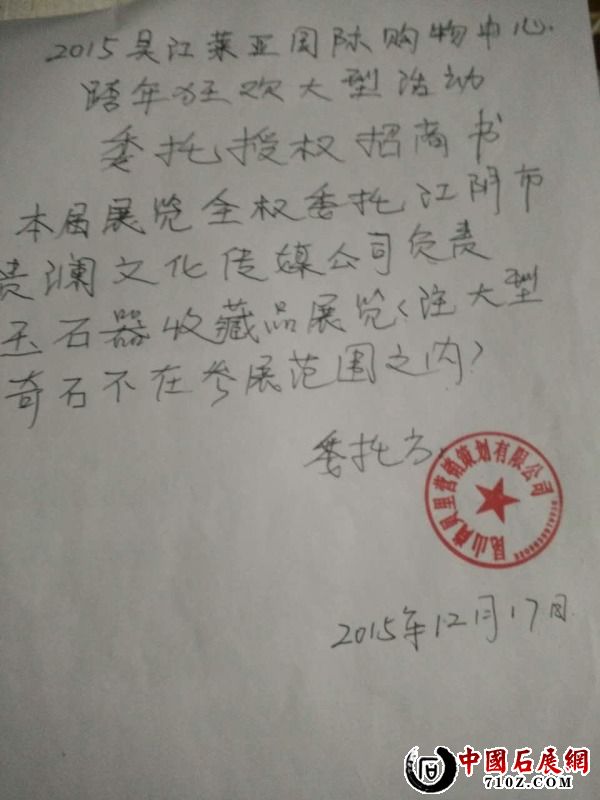 2015吴江莱亚国际购物中心
跨年狂欢大型活动
委托授权招商书
本届展览全权委托江阴市
贵澜文化传媒公司负责
玉石器收藏品展览(注大型
奇石不在参展范围之内)
委托方:
昆山 贝里营销策划有限公司
2015年12月17日
中國石展網
710Z.COM